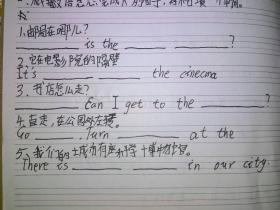 1.邮局在哪儿?
is the ?
2.它在电影院的隔壁
It's the cinema
3.书店怎么走?
Can I get to the ?
4.直走,在公园左转。
Go . Turn at the
5.我们的城市有座科学博物馆。
There is in our city.